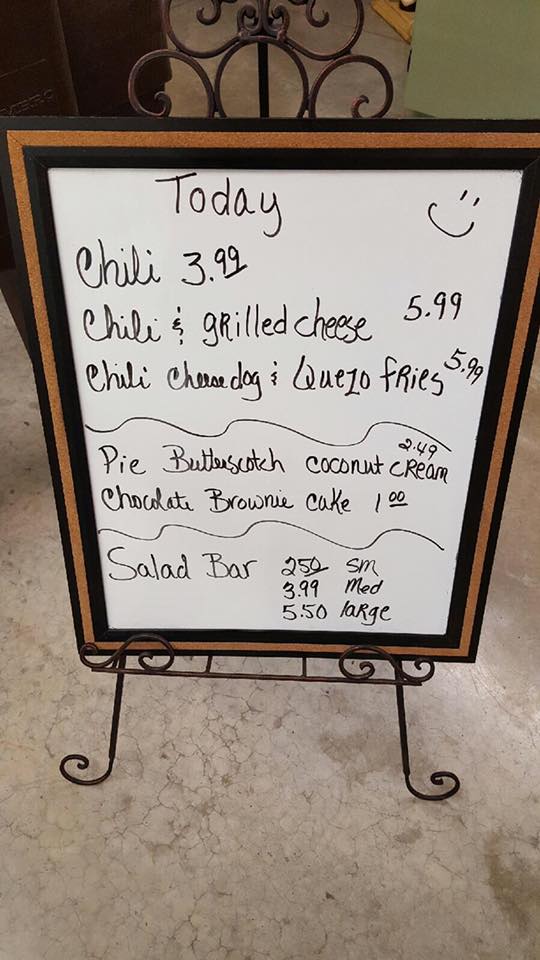 Today
Chili 3.99
Chili & grilled cheese 5.99
Chili Cheese dog & Quezo fries 5.99
Pie Butterscotch coconut cream 2.49
Chocolate Brownie cake 1 00
Salad Bar 250 sm
3.99 Med
5.50 large